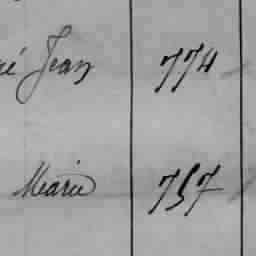 ré Jean 774
Marie 757